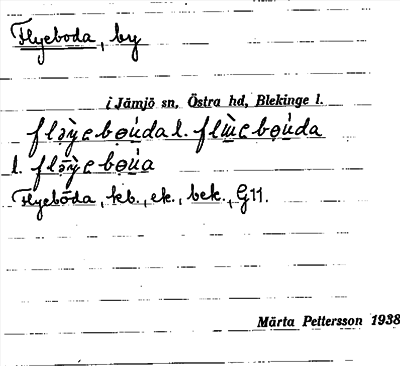 Flyeboda, by
i Jämjö sn, Östra hd, Blekinge l.
flə̣ỳebo̤úda l. flɯ̤̀ebo̤úda
l. flə̣ỳebo̤úa
Flyeboda, kb., ek., bek., G11.
Märta Pettersson 1938